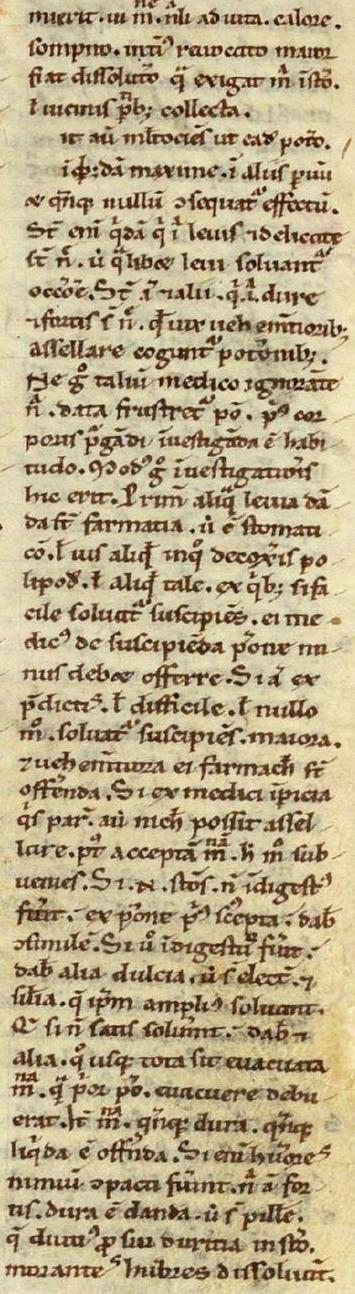 muerit. ut m̄. nʳli ad uita. calore.
sompno. intiᷤ reuocato maior
fiat dissolutō q̄ exigat m̄ i stō.
ł uicinis p̄b; collecta.
it aū mltociēs ut eadē potō.
dā maxime. ī alus p̄uū
æ qn̄q; nullū ɔsequatᷣ effectū.
St̄ eni qͥdā qͥ ī leuis ⁊ delicate
st̄ n̄. ū qͥ libæ leui soluantᷣ
occōe. St̄ ⁊ alii. qͥ. dure
⁊ fortis s̄ n̄. qͥ uix uehemētiorib;
assellare coguntᷣ potōnib;.
Ne gͦ taliū medico ignorāte
n̄. data frustretᷣ pō. pͥᷤ cor
poris pᷣgādi īuestigāda ē habi
tudo. Modᷤ gͦ īuestigatiōis
hic erit. Primū aliqͣ leuia dā
da st̄ farmatia. ū ē stomati
cō. ł uis aliqͥd inqͦ decoxͥis po
lipodͥ. ł aliqͥd tale. ex qͥb; si fa
cile soluitᷣ suscipiēs. ei me
dicᷤ de suscipiēda p̄one mi
nus debæ offerre. Si aͫ ex
p̄dictiᷤ. ł difficile. ł nullo
mͦ. soluatᷣ suscipiēs. maiora.
⁊ uehemētiora ei farmacħ st̄
offerēnda. Si ex medici īpicia
qͥs parͫ. aū nichͥ possit assel
lare. pᷤt acceptā mᷓm̄. ħ mͦ sub
uenies. Si. N. stōs. n̄ īdigestᷤ
fūit. ex p̄one pͥᷤ scepta. dab̄
ɔsimilē. Si uͦ īdigestᷤ fūit.
dab̄ alia dulcia. ū s̄ elect. ⁊
silia. q̄ ip̄m ampliᷤ soluant.
Q si n̄ satis soluunt. dab̄ ⁊
alia. qͦ usq; tota sit euacuata
mᷓ. q̄ pͥor pō. euacuere debu
erat. It̄ mᷓ. qn̄q; dura. qn̄q;
liqͥda ē offerēda. Si eni hūoreᷤ
nimiū ɔpacti fūint. n̄ ā for
tis. dura ē danda. ū s̄ pille.
q̄ diutiᷤ p̄ sui duritia in stō.
moranteᷤ hūores dissoluūt.